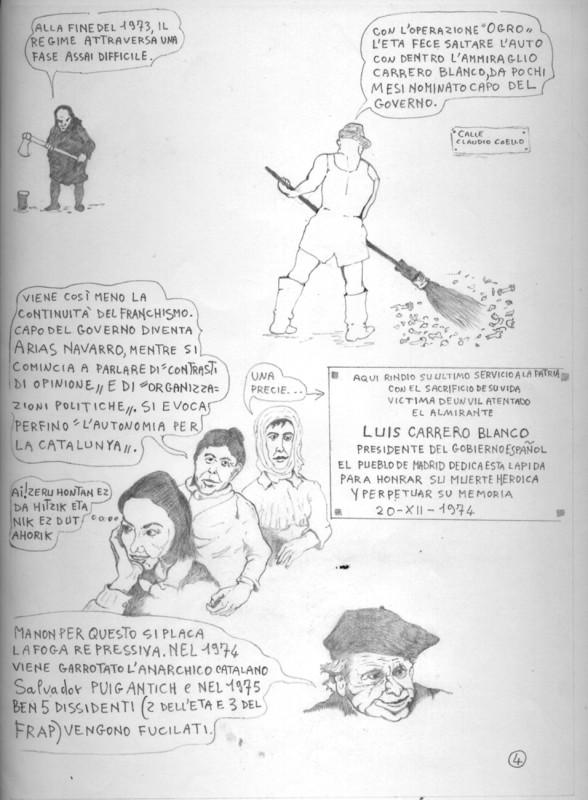 ALLA FINE DEL 1973, IL
REGIME ATTRAVERSA UNA
FASE ASSAI DIFFICILE.
CON L'OPERAZIONE "OGRO"
L'ETA FECE SALTARE L'AUTO
CON DENTRO L'AMMIRAGLIO
CARRERO BLANCO, DA POCHI
MESI NOMINATO CAPO DEL
GOVERNO.
CALLE
CLAUDIO COELLO
VIENE COSÌ MENO LA
CONTINUITA' DEL FRANCHISMO.
CAPO DEL GOVERNO DIVENTA
ARIAS NAVARRO, MENTRE SI
COMINCIA A PARLARE DI "CONTRASTI
DI OPINIONE" E DI "ORGANIZZA=
ZIONI POLITICHE". SI EVOCA
PERFINO "L'AUTONOMIA PER
LA CATALUNYA".
UNA
PRECIE...
AQUI RINDIO SU ULTIMO SERVICIO A LA PATRIA
CON EL SACRIFICIO DE SU VIDA
VICTIMA DE UN VIL ATENTADO
EL ALMIRANTE
LUIS CARRERO BLANCO
PRESIDENTE DEL GOBIERNO ESPAÑOL
EL PUEBLO DE MADRID DEDICA ESTA LAPIDA
PARA HONRAR SU MUERTE HEROICA
Y PERPETUAR SU MEMORIA
20-XII-1974
AI! ZERU HONTAN EZ
DA HITZIK ETA
NIK EZ DUT
AHORIK
MA NON PER QUESTO SI PLACA
LA FOGA REPRESSIVA. NEL 1974
VIENE GARROTATO L'ANARCHICO CATALANO
Salvador PUIG ANTICH e NEL 1975
BEN 5 DISSIDENTI (2 DELL'ETA E 3 DEL
FRAP) VENGONO FUCILATI.
4